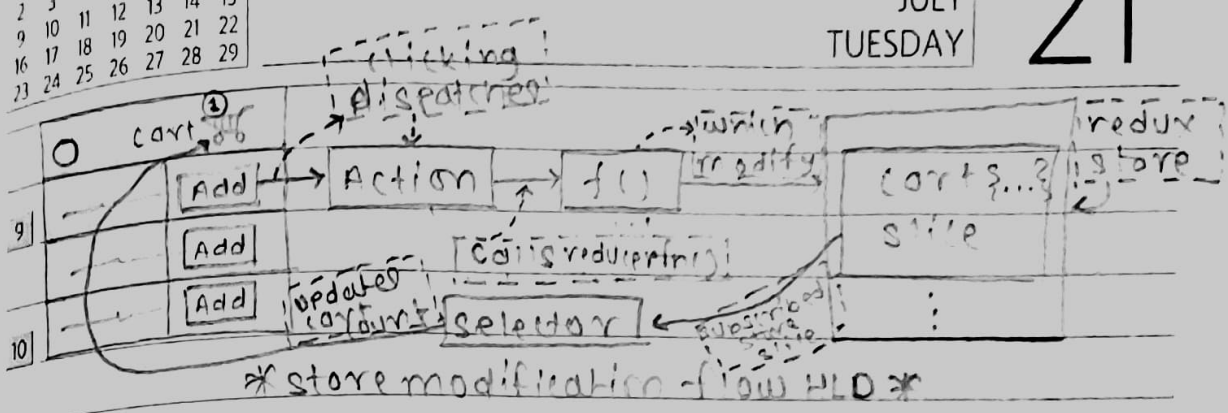 2 3
9 10 11 12 13 14 15
16 17 18 19 20 21 22
23 24 25 26 27 28 29
JULY
TUESDAY
21
clicking
dispatches
1
cart
Add
Action
f()
which
modify
cart {...}
slice
redux
store
9
Add
calls reducer fn()
Add
updates
selector
subscribed
store
slice
:
10
* store modification flow HLD *